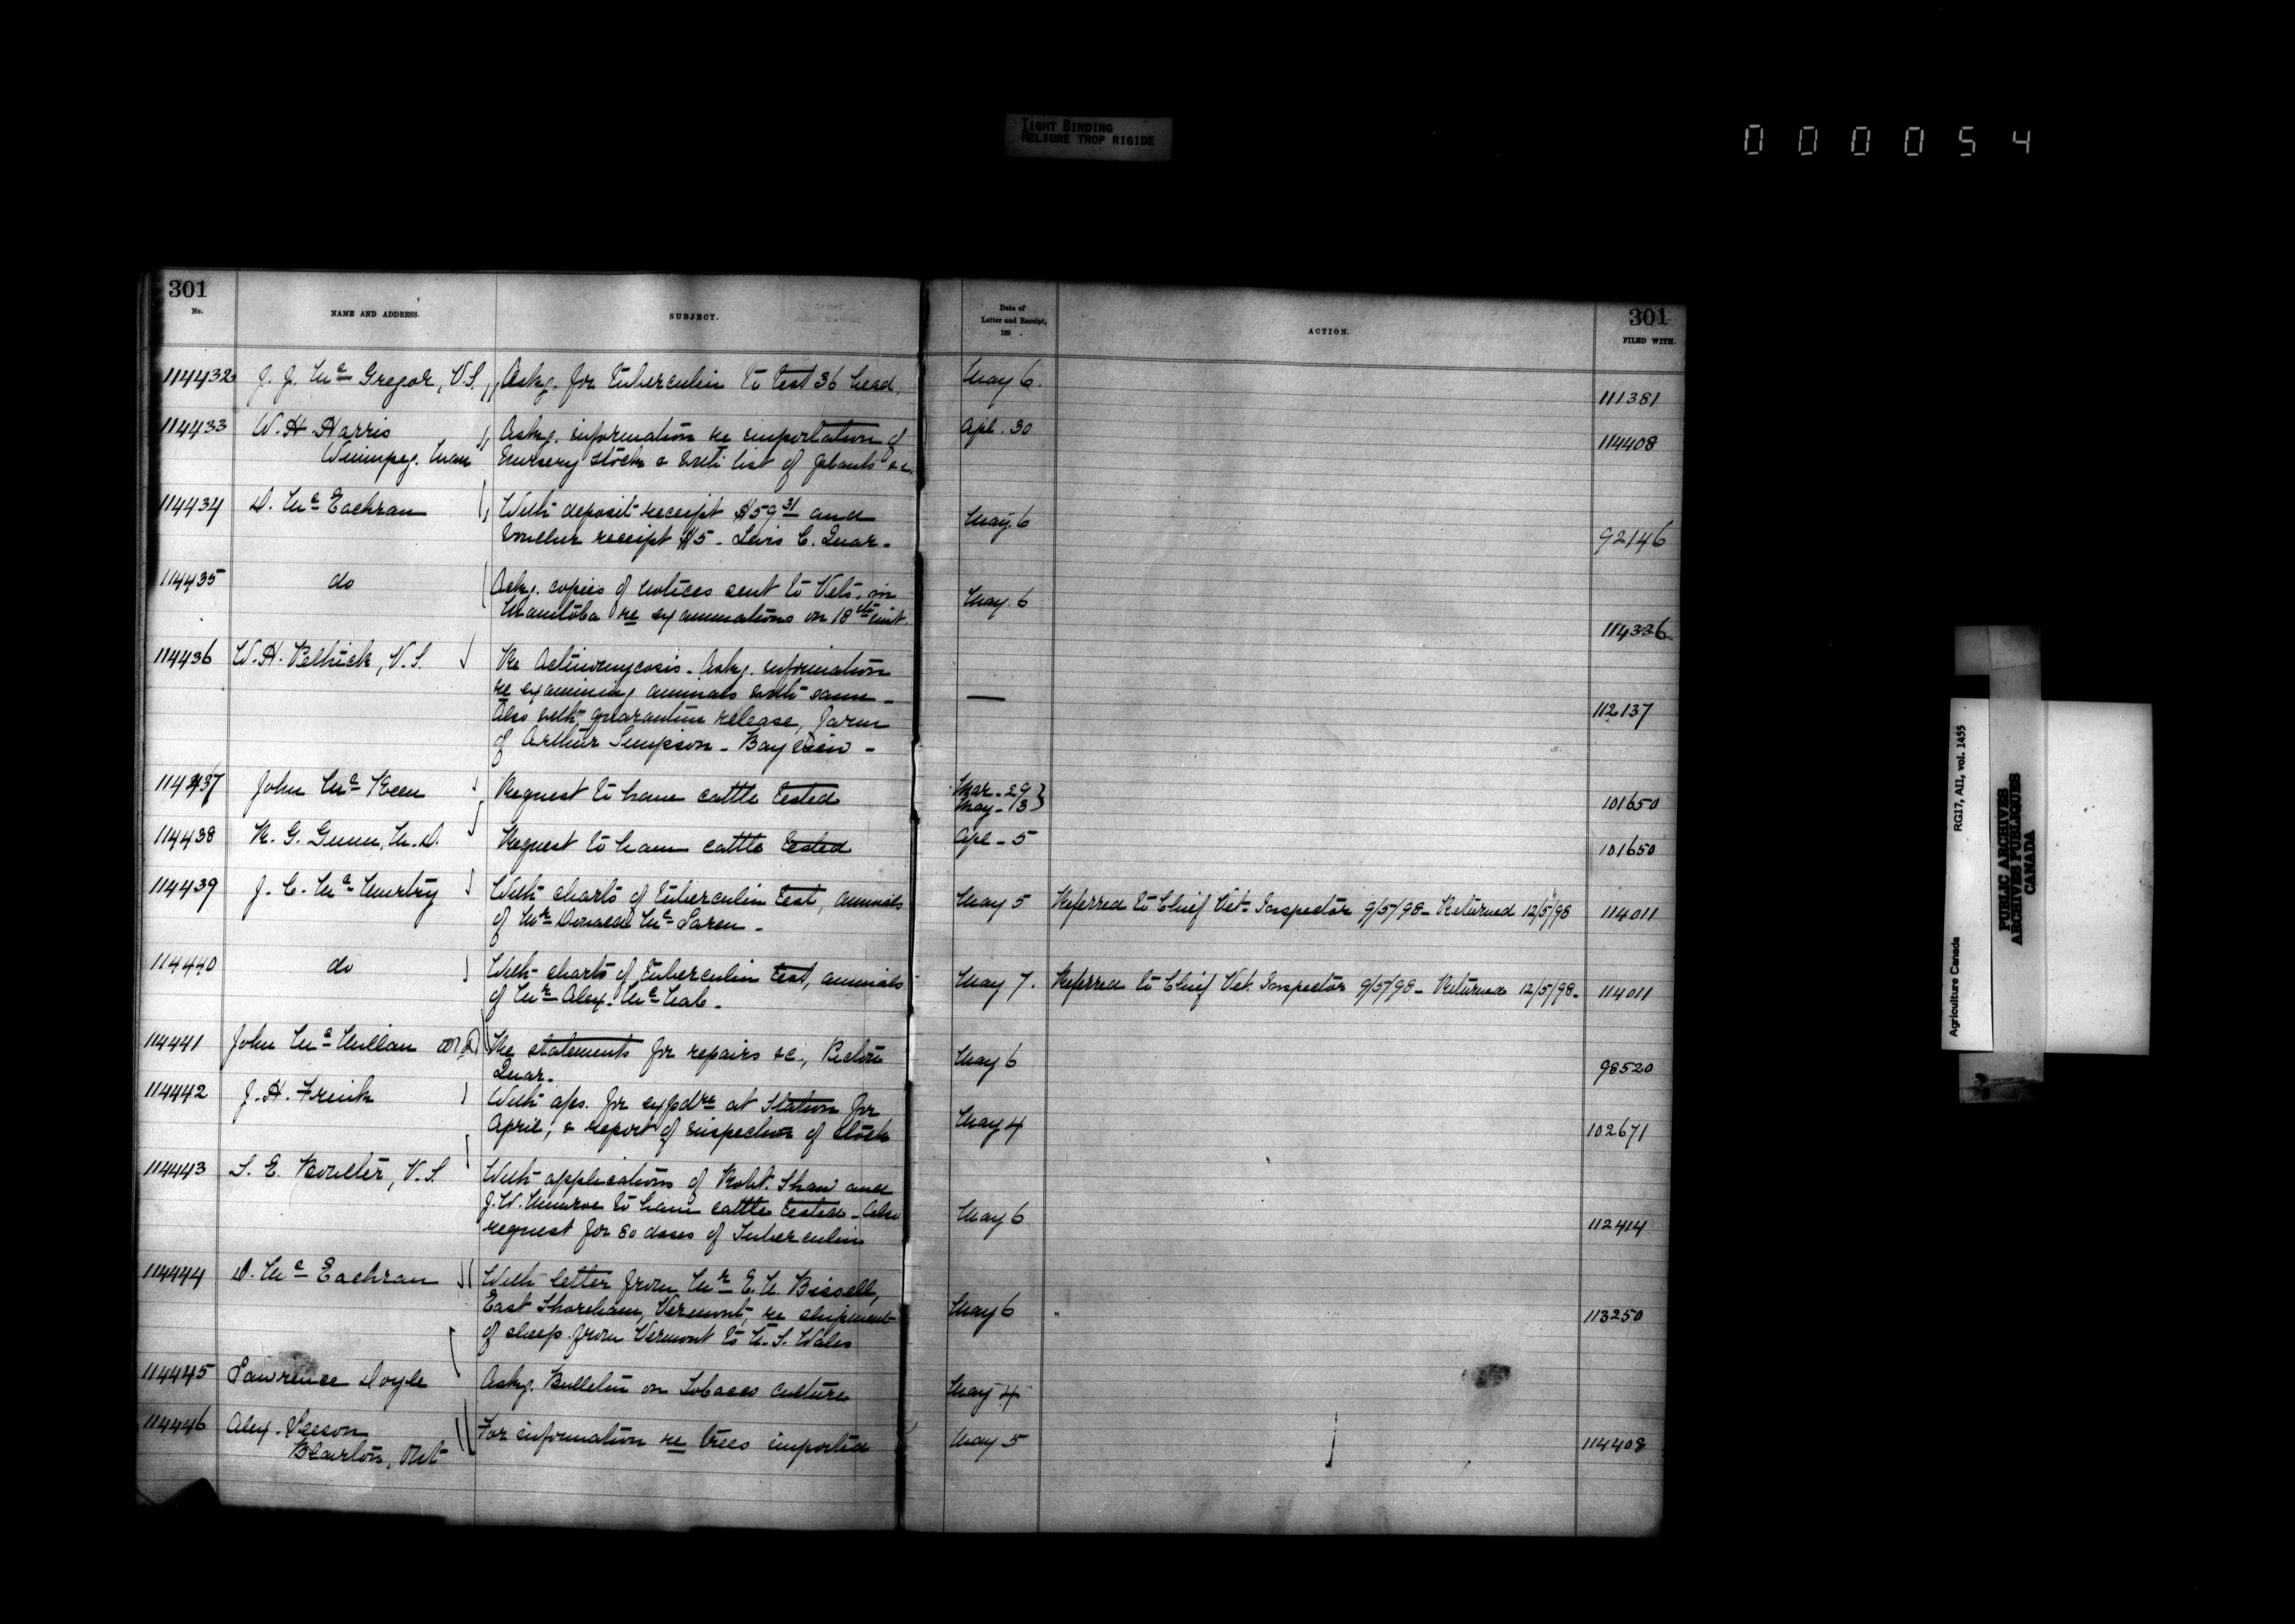 TIGHT BINDING
RELIURE TROP RIGIDE
000054
301
No.
NAME AND ADDRESS.
SUBJECT.
Date of
Letter and Receipt,
189 .
ACTION.
301
FILED WITH.
114432 J. J. McGregor, V.S. Askg. for tuberculin to test 36 head. May 6. 111381
114433 W. H. Harris Askg. information re importation of Apl. 30 114408
Winnipeg. Man Nursery stock & with list of plants &c.
114434 D. McEachran With deposit receipt $59 31 and May. 6 92146
voucher receipt $5 - Levis C. Quar.
114435 do Askg. copies of notices sent to Vets. in May. 6 114336
Manitoba re examinations on 18th inst.
114436 W. H. Pethick, V.S. Re Actinomycosis. Askg. information — 112137
re examining animals with same -
Also with quarantine release, farm
of Arthur Simpson - Bay View -
114437 John McKeen Request to have cattle tested Mar. 29 101650
May. 3
114438 R. G. Gunn, M.D. Request to have cattle tested Apl. 5 101650
114439 J. C. McMurtry With charts of tuberculin test, animals May 5 Referred to Chief Vet. Inspector 9/5/98 - Returned 12/5/98 114011
of Mr Donald McLaren -
114440 do With charts of tuberculin test, animals May 7. Referred to Chief Vet. Inspector 9/5/98 - Returned 12/5/98 - 114011
of Mr Alex. McNab -
114441 John McMillan Re statements for repairs &c, Pictou May 6 98520
Quar.
114442 J. H. Frink With a/cs. for expdre at Station for May 4 102671
April, & report of inspection of stock
114443 S. E. Boulter, V.S. With applications of Robt. Shaw and May 6 112414
J. W. Munroe to have cattle tested - Also
request for 80 doses of Tuberculin
114444 D. McEachran With letter from Mr E. N. Bissell, May 6 113250
East Shoreham, Vermont, re shipment
of sheep from Vermont to N. S. Wales
114445 Lawrence Doyle Askg. Bulletin on Tobacco culture May 4
114446 Alex. For information re trees imported May 5 114408
Ont
Agriculture Canada RG17, AII, vol. 1455
PUBLIC ARCHIVES
ARCHIVES PUBLIQUES
CANADA